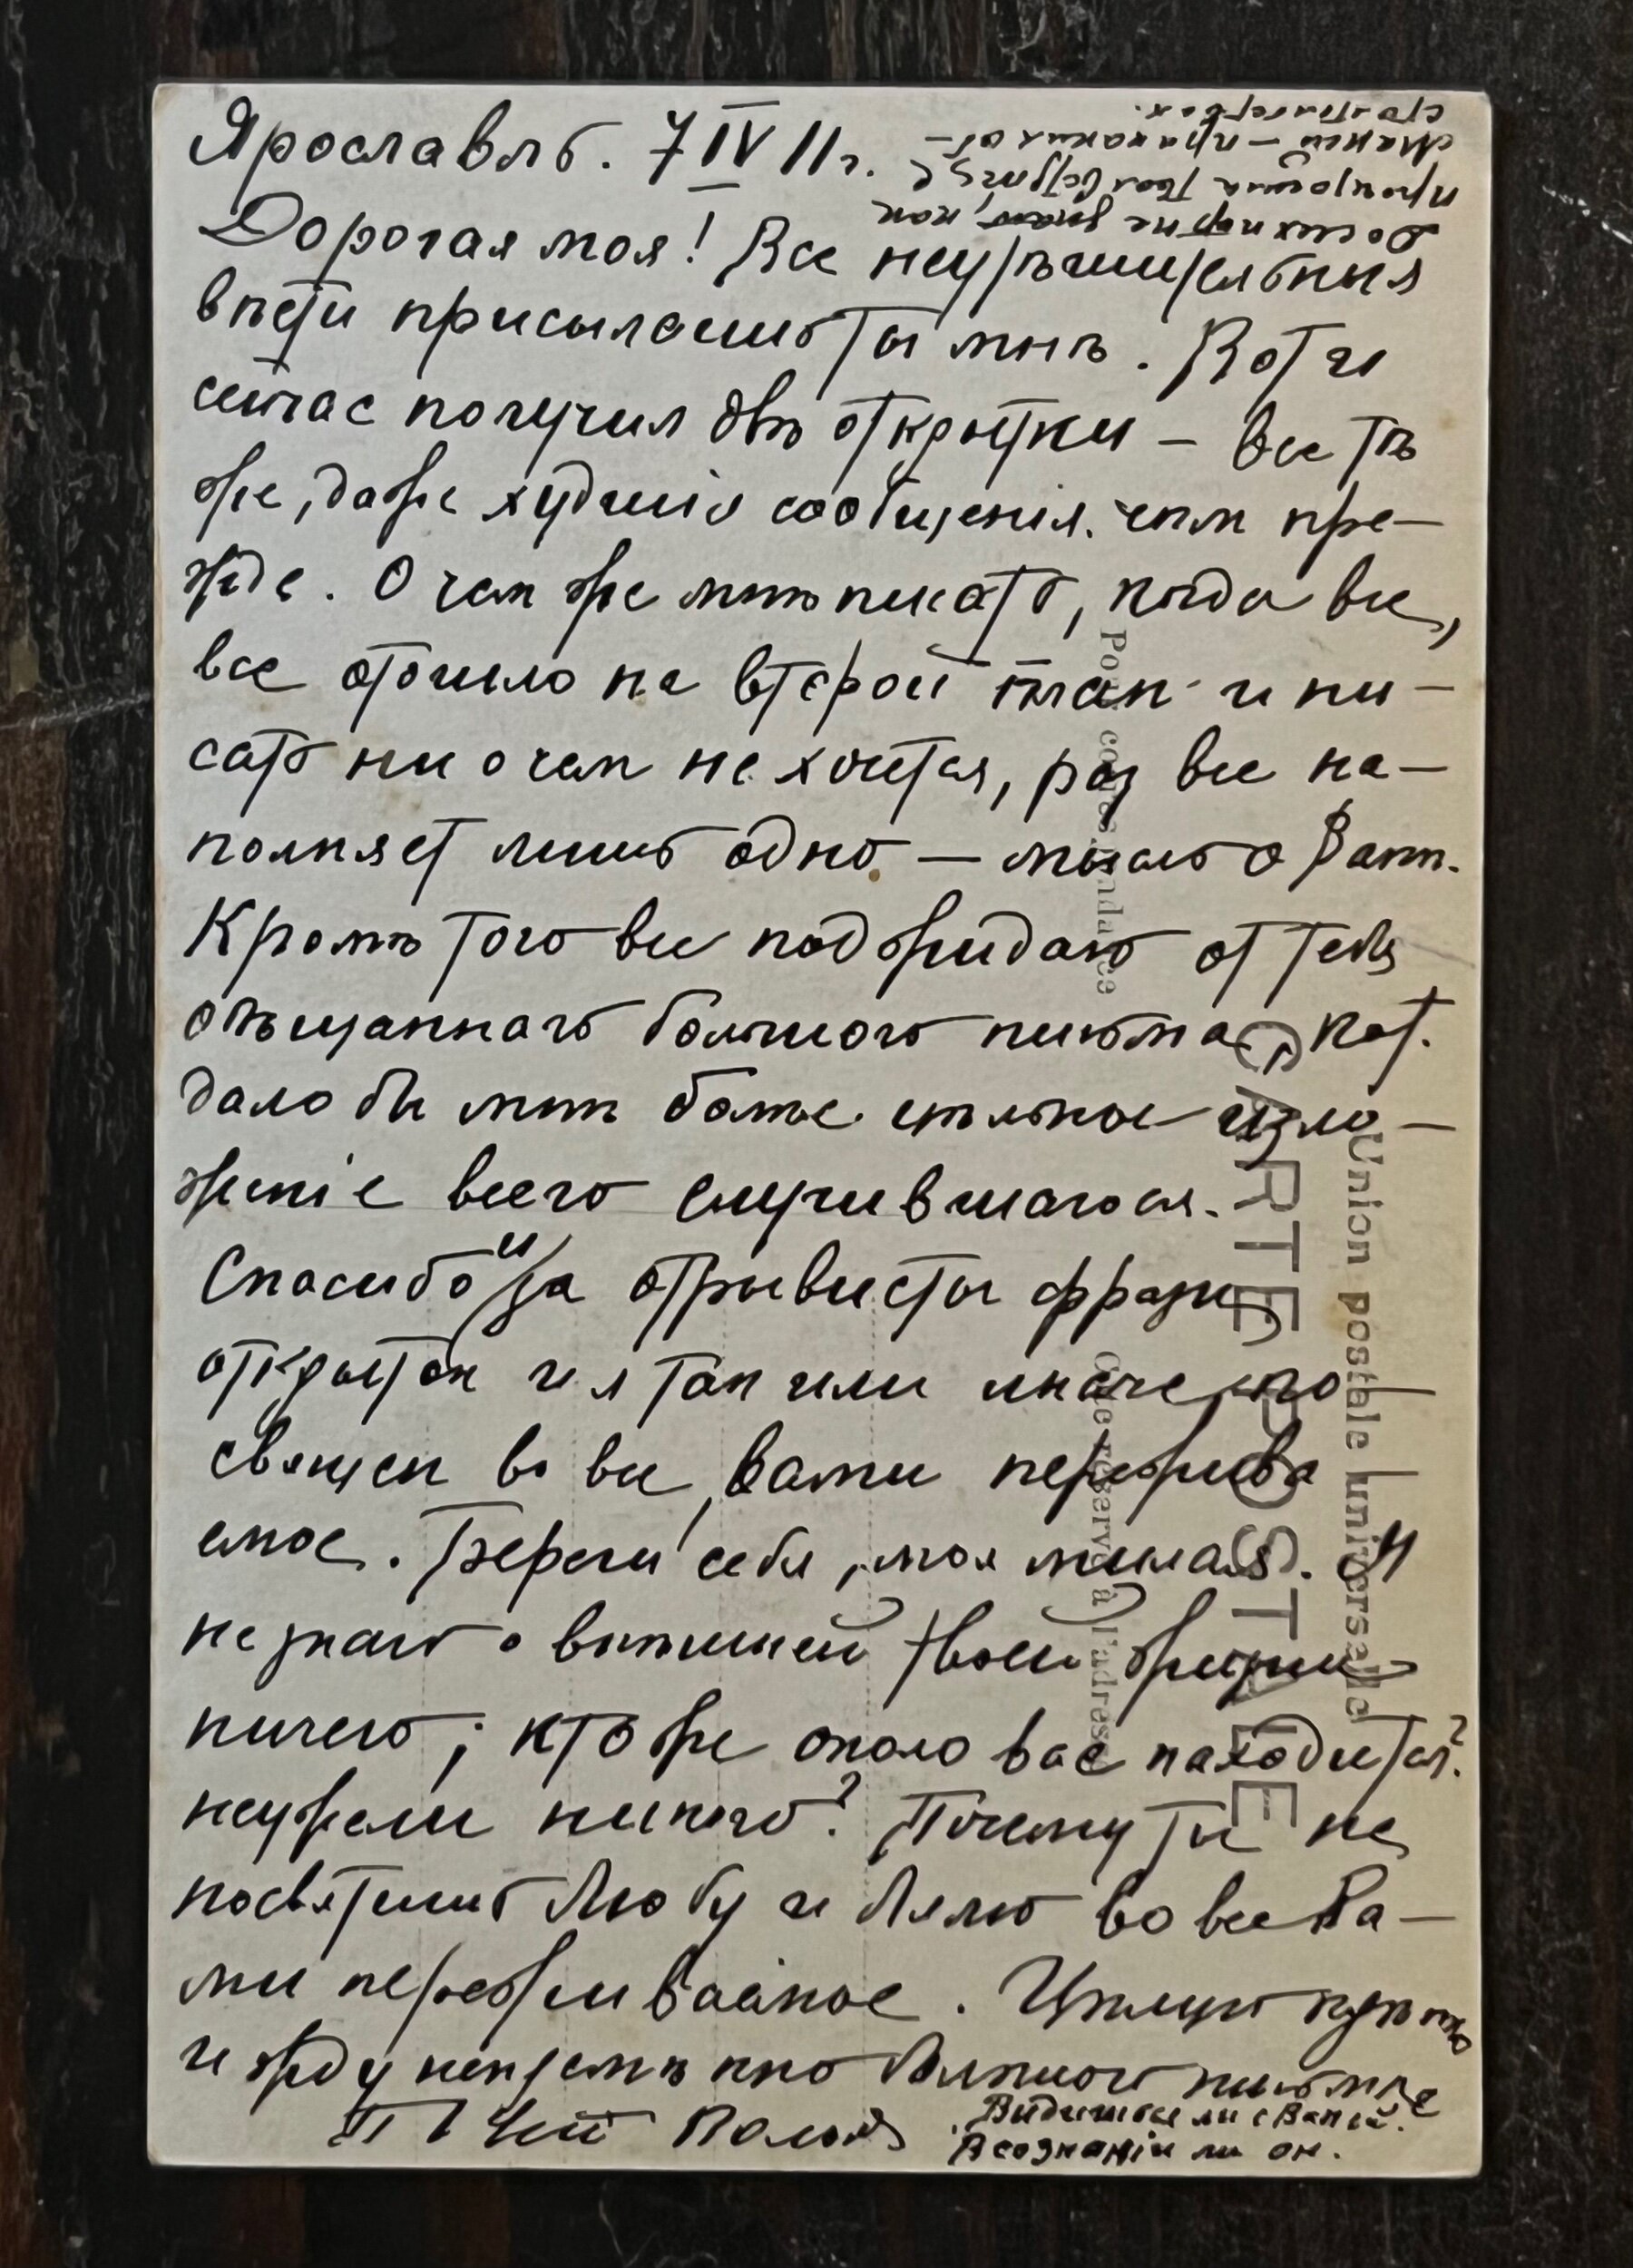 Ярославль. 7 IV 11 г.
Дорогая моя! Все неутѣшительныя
вѣсти присылаешь ты мнѣ. Вот и
сейчас получил двѣ открытки – все тѣ
же, даже худшія сообщенія, чѣм пре-
жде. О чем же мнѣ писать, когда все,
все отошло на второй план и пи-
сать ни о чем не хочется, раз все на-
полняет лишь одно – мысль о Ване.
Кромѣ того все поджидаю от тебя
обѣщаннаго большого письма, кот.
дало бы мнѣ болѣе цѣльное изло-
женіе всего случившагося.
Спасибо и за отрывистыя фразы
открыток и я так или иначе, по-
священ во все, вами пережива
емое. Береги себя, моя милая. Я
не знаю о внѣшней твоей жизни
ничего; кто же около вас находится?
неужели никого? Почему ты не
посвятишь Любу и Лялю во все Ва-
ми переживаемое. Цѣлую крѣпко
и жду нетерпѣливо большого письма
Твой Володя
Видишься ли с Ваней.
В сознаніи ли он.
До сих пор не знаю, как
произошла Твоя встрѣча с
Маней – при каких об-
стоятельствах.
Pour correspondance
CARTE POSTALE
Union postale universelle
Côté réservé à l'adresse